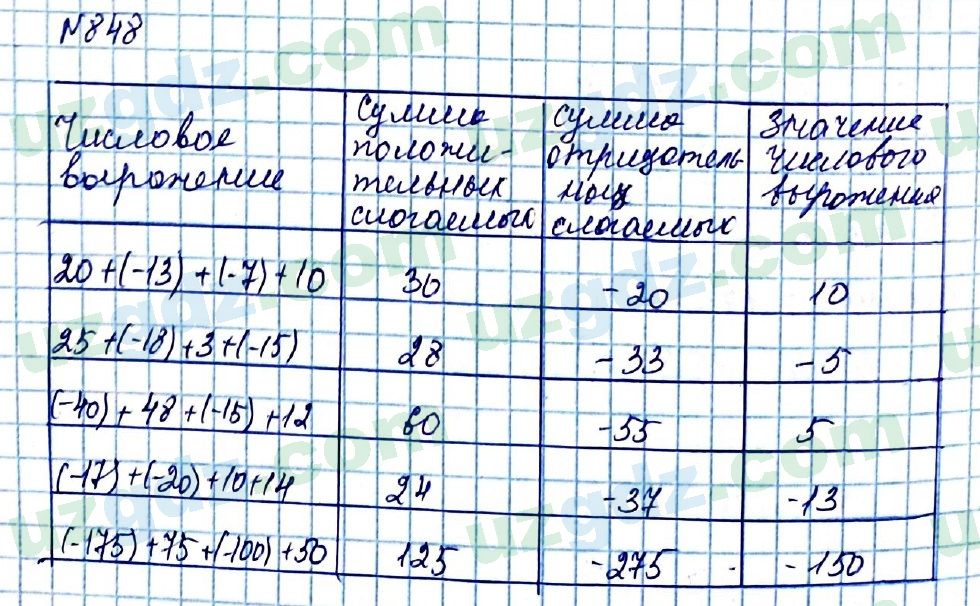 №848
Числовое выражение
Сумма положи-тельных слогаемых
Сумма отридательных слогаемых
Значение числового выражения
20+(-13)+(-7)+10 30 -20 10
25+(-18)+3+(-15) 28 -33 -5
(-40)+48+(-15)+12 60 -55 5
(-17)+(-20)+10+14 24 -37 -13
(-175)+75+(-100)+50 125 -275 -150
uzgdz.com